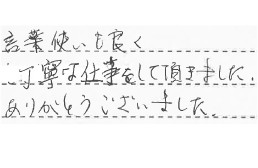 言葉使いも良く
ご丁寧な仕事をして頂きました。
ありがとうございました。